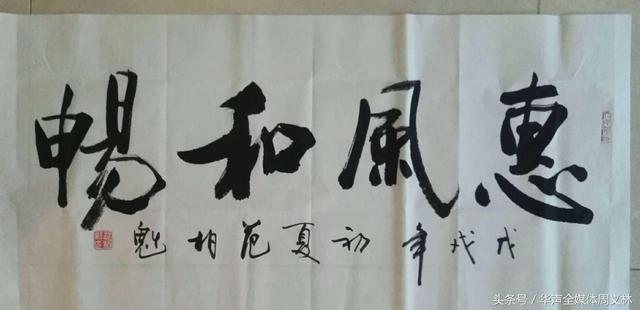 惠風和暢
戊戌年初夏范相魁
头条号／华声全媒体周义林